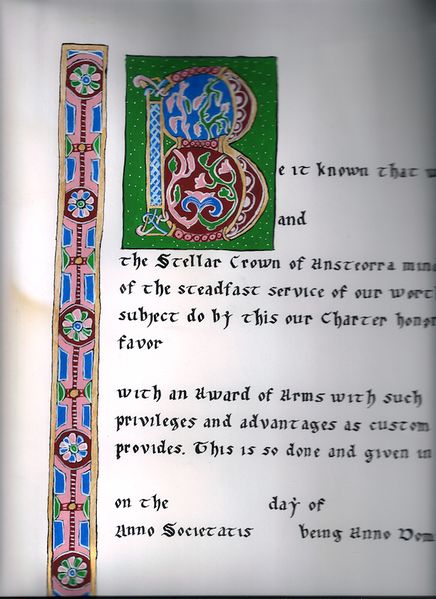 Be it known that
and
the Stellar Crown of Ansteorra
of the steadfast service of our
subject do by this our Charter
favor
with an Award of Arms with such
privileges and advantages as custom
provides. This is so done and given in
on the day of
Anno Societatis being Anno